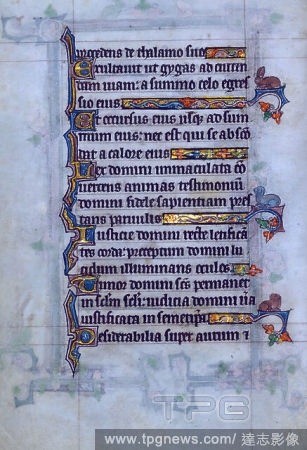 procedens de thalamo suo
Exultauit ut gygas ad curren
dam uiam: a summo celo egres
sio eius
Et occursus eius usq; ad sum
mum eius: nec est qui se absco
dat a calore eius
Lex domini immaculata co
uertens animas testimoniu
domini fidele sapientiam pres
tans paruulis
Iusticie domini recte letifica
tes corda: preceptum domini lu
cidum illuminans oculos
Timor domini scs permanet
in sclm scli: iudicia domini ua
iustificata in semetipsa
Desiderabilia super aurum &
TPG
www.tpgnews.com/ 達志影像